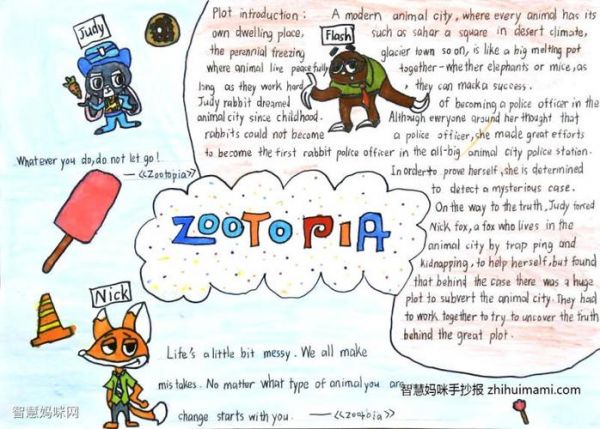 Judy
Flash
Plot introduction: A modern animal city, where every animal has its
own dwelling place, such as sahar a square in desert climate,
the perennial freezing glacier town so on, is like a big melting pot
where animal live peacefully together-whether elephants or mice, as
long as they work hard, they can macka success.
Judy rabbit dreamed of becoming a police officer in the
animal city since childhood. Although everyone around her thought that
rabbits could not become a police officer, she made great efforts
to become the first rabbit police officer in the all-big animal city police station.
In order to prove herself, she is determined
to detect a mysterious case.
On the way to the truth, Judy forced
Nick fox, a fox who lives in the
animal city by trap ping and
kidnapping, to help herself, but found
that behind the case there was a huge
plot to subvert the animal city. They had
to work together to try to uncover the truth
behind the great plot.
Whatever you do, do not let go!
—《Zootopia》
ZOOTOPIA
Nick
Life's a little bit messy. We all make
mistakes. No matter what type of animal you are
change starts with you. ——《Zootopia》
智慧妈咪手抄报 zhihuimami.com
智慧妈咪网